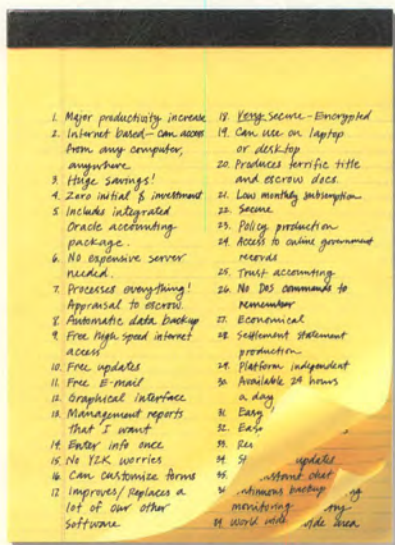 1. Major productivity increase
2. Internet based - can access
from any computer,
anywhere
3. Huge savings!
4. Zero initial $ investment
5 Includes integrated
Oracle accounting
package.
6. No expensive server
needed.
7. Processes everything!
Appraisal to escrow.
8. Automatic data backup
9. Free high speed internet
access
10. Free updates
11. Free E-mail
12. Graphical interface
13. Management reports
that I want
14. Enter info once
15. No Y2K worries
16. Can customize forms
17 Improves/Replaces a
lot of our other
software
18. Very secure - Encrypted
19. Can use on laptop
or desktop
20. Produces terrific title
and escrow docs.
21. Low monthly subscription
22. Secure
23. Policy production
24. Access to online government
records
25. Trust accounting
26. No DOS commands to
remember
27. Economical
28. Settlement statement
production
29. Platform independent
30. Available 24 hours
a day
31. Easy
32. Eas
33. Re
34. St updates
35. instant chat
36 continuous backup
monitoring
wide area